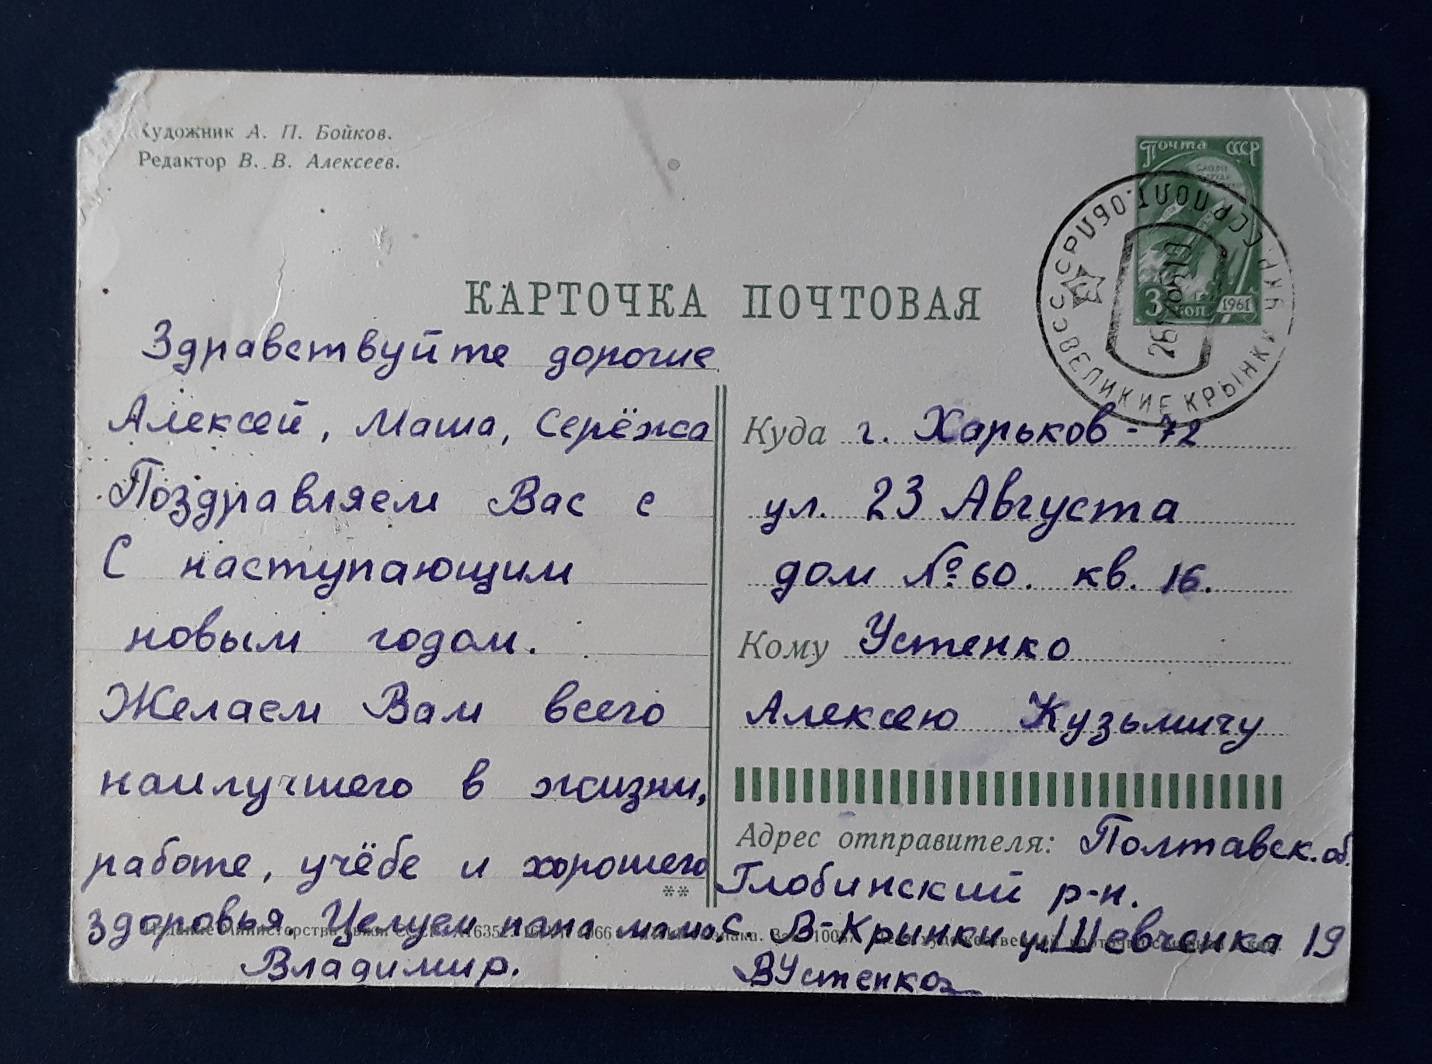 Художник А. П. Бойков.
Редактор В. В. Алексеев.
Почта СССР
3 коп
1961
СССР УКР. ССР ПОЛТ. ОБЛ.
ВЕЛИКИЕ КРЫНКИ
КАРТОЧКА ПОЧТОВАЯ
Здравствуйте дорогие
Алексей, Маша, Серёжа
Поздравляем Вас с
С наступающим
новым годом.
Желаем Вам всего
наилучшего в жизни,
работе, учёбе и хорошего
здоровья. Целуем папа мама,
Владимир.
Куда г. Харьков - 72
ул. 23 Августа
дом № 60. кв. 16.
Кому Устенко
Алексею Кузьмичу
Адрес отправителя: Полтавск. об.
Глобинский р-н.
с. В-Крынки ул Шевченка 19
ВУстенко